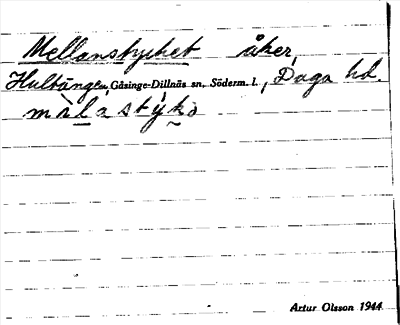 Mellanstycket åker,
Hultängen, Gåsinge-Dillnäs sn, Söderm. l., Daga hd.
màlastýkə
Artur Olsson 1944